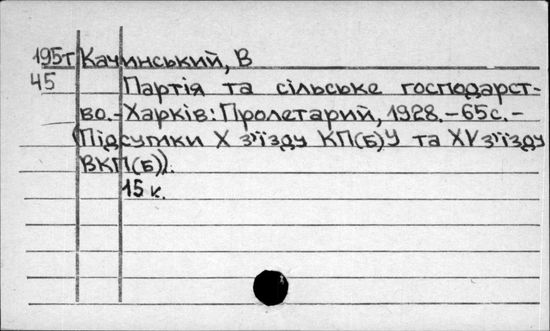 195т Качинський, В
45 Партія та сільське господарст-
во.-Харків: Пролетарий, 1928.-65с.-
(Підсумки X з'їзду КП(б)У та XV з'їзду
ВКП(б)).
15 к.